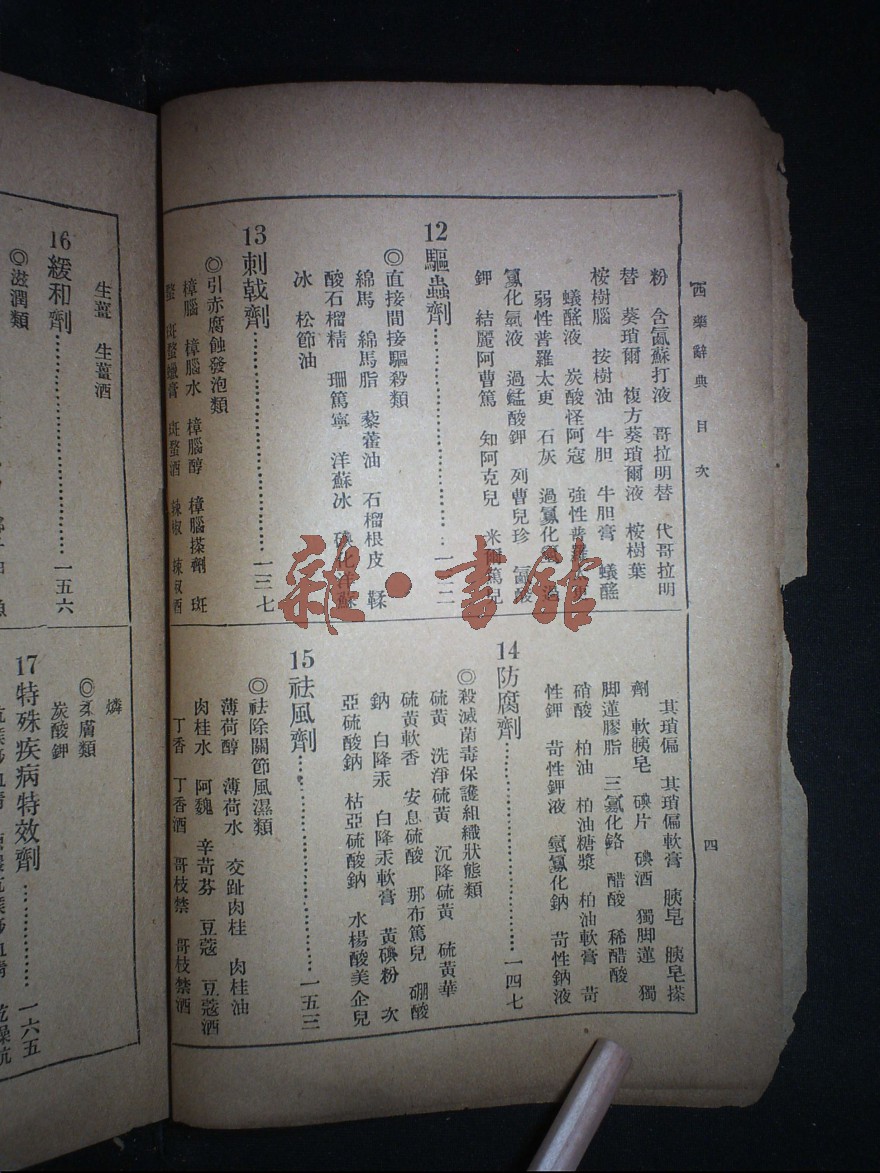 西藥辭典 目次
四
粉 含氯蘇打液 哥拉明替 代哥拉明
替 葵瑣爾 複方葵瑣爾液 桉樹葉
桉樹腦 按樹油 牛胆 牛胆膏 蟻醛
蟻醛液 炭酸怪阿寇 強性普羅
弱性普羅太更 石灰 過氯化
氯化氫液 過錳酸鉀 列曹兒珍
鉀 結麗阿曹篤 知阿克兒 米爾篤兒
12 驅蟲劑
◎直接間接驅殺類
綿馬 綿馬脂 藜藿油 石榴根皮 鞣
酸石榴精 珊篤寧 洋蘇冰 碘化洋蘇
冰 松節油
13 刺戟劑 一三七
◎引赤腐蝕發泡類
樟腦 樟腦水 樟腦醇 樟腦搽劑 斑
蝥 斑蝥蠟膏 斑蝥酒 辣椒 辣椒酒
其瑣偏 其瑣偏軟膏 胰皂 胰皂搽
劑 軟胰皂 碘片 碘酒 獨脚蓮 獨
脚蓮膠脂 三氯化鉻 醋酸 稀醋酸
硝酸 柏油 柏油糖漿 柏油軟膏 苛
性鉀 苛性鉀液 氫氯化鈉 苛性鈉液
14 防腐劑 一四七
◎殺滅菌毒保護組織狀態類
硫黃 洗淨硫黃 沉降硫黃 硫黃華
硫黃軟香 安息硫酸 那布篤兒 硼酸
鈉 白降汞 白降汞軟膏 黃碘粉 次
亞硫酸鈉 枯亞硫酸鈉 水楊酸美企兒
15 祛風劑 一五三
◎祛除關節風濕類
薄荷醇 薄荷水 交趾肉桂 肉桂油
肉桂水 阿魏 辛苛芬 豆蔻 豆蔻酒
丁香 丁香酒 哥枝禁 哥枝禁酒
生薑 生薑酒
16 緩和劑 一五六
◎滋潤類
燐
◎柔膚類
炭酸鉀
17 特殊疾病特效劑 一六五
雜·書館